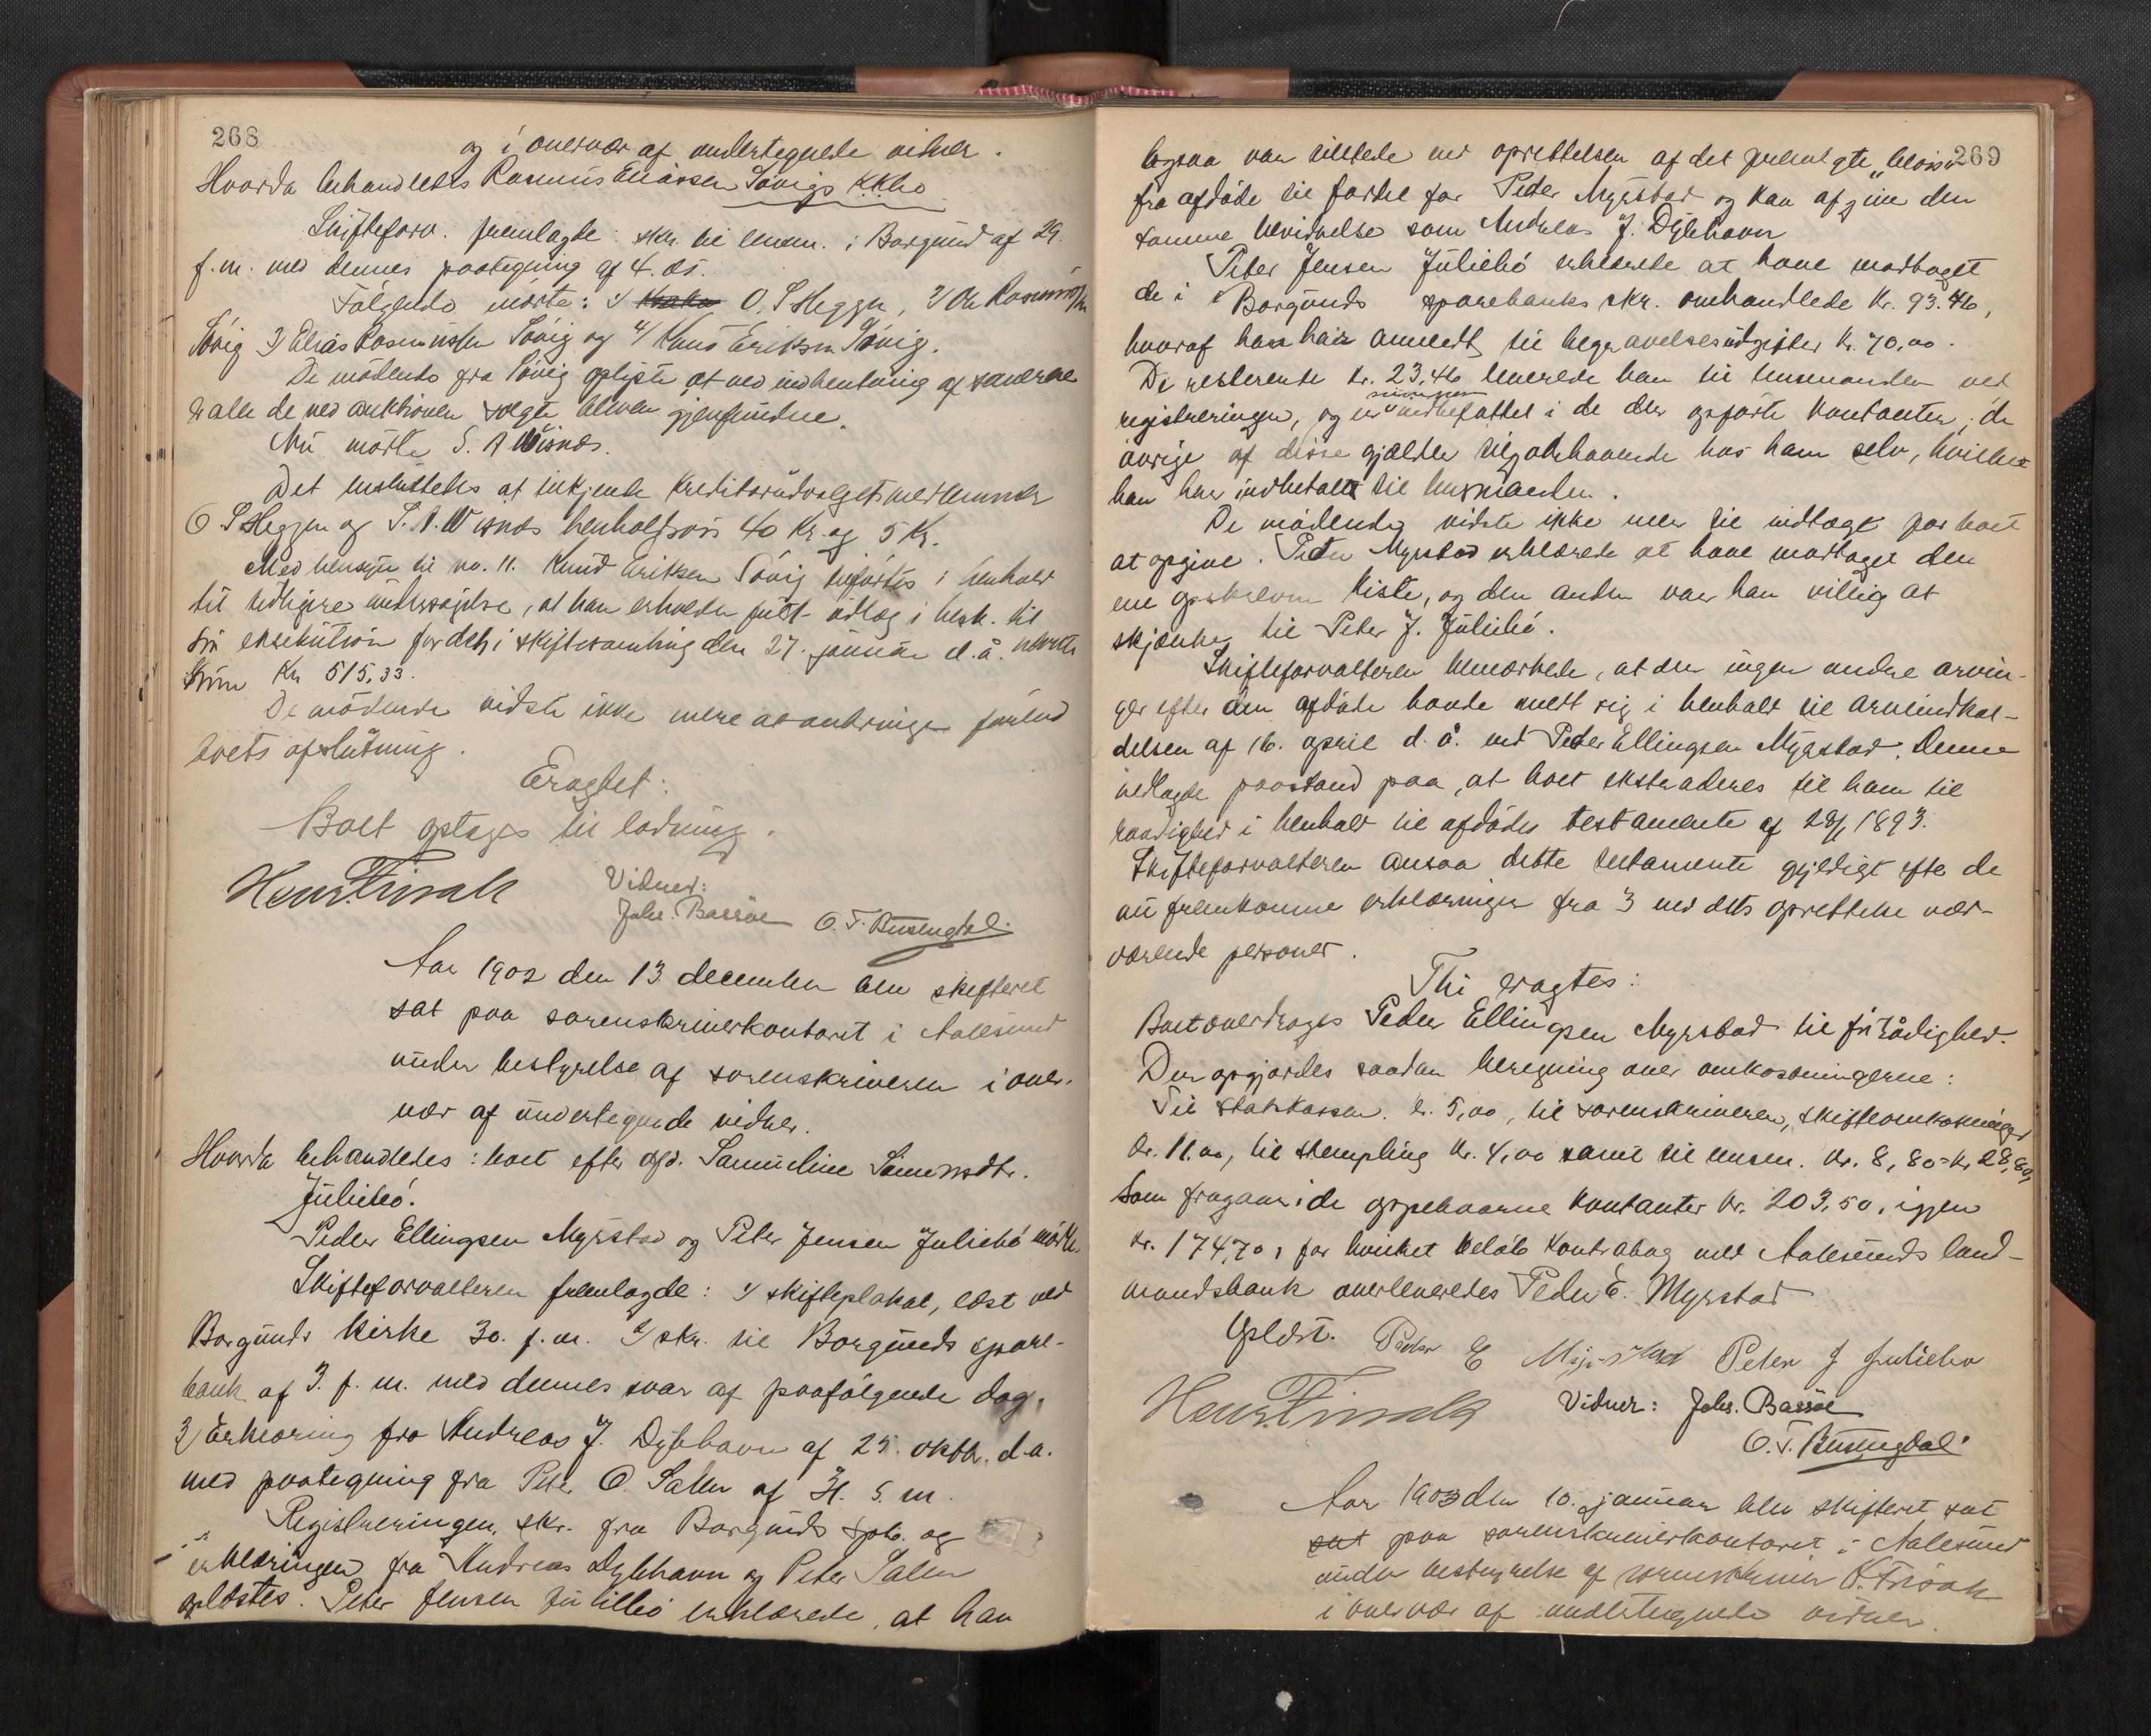 268
og i overvær af undertegnede vidner.
Hvorda behandledes Rasmus Eliassen Søvigs KKbo
Skifteforv. fremlagde: skr. til lensm. i Borgund af 29.
f.m. med dennes paategning af 4. ds.
Følgende mødte: 1/ O. S Heggen, 2/ Ole Rasmussen
Søvig 3/ Elias Rasmussen Søvig og 4/ Knud Eriksen Søvig.
De mødende fra Søvig oplyste at ved indhentning af
er alle de ved auktionen solgte bleven gjenfundne.
Nu mødte S. A Wisnes.
Det besluttedes at tilkjende kreditorudvalgets medlemmer
O S Heggen og S. A. Wisnes henholdsvis 40 Kr. og 5 Kr.
Med hensyn til no. 11. Knud Eriksen Søvig tilførtes i henhold
til tidligere undersøgelse, at han erholder fuldt udlæg i henh. til
sin eksekution for det i skiftesamling den 27. januar d. å.
sum Kr 515,33.
De mødende vidste ikke mere at anbringe forind
boets afslutning.
Eragtet:
Boet optages til lodning.
Henr. Finsah
Vidner:
Johs. Bassøe O. T. Busengdal.
Aar 1902 den 13 december blev skifteret
sat paa sorenskriverkontoret i Aalesund
under bestyrelse af sorenskriveren i over-
vær af undertegnede vidner.
Hvorda behandledes: boet efter afd. Samueline Simonsdtr.
Juliebø.
Peder Ellingsen Myrstad og Peter Jensen Juliebø mødte.
Skifteforvalteren fremlagde: 1/ skifteplakat, læst ved
Borgunds kirke 30. f. m. 2/ skr. til Borgunds spare-
bank af 3. f. m. med dennes svar af paafølgende dag.
3/ Erklæring fra Andreas J. Dybhavn af 25. oktbr. d.a.
med paategning fra Peter O. Salen af s. m.
Registreringen, skr. fra Borgunds spb. og
erklæringen fra Andreas Dybhavn og Peter Salen
oplæstes. Peter Jensen Juliebø erklærede, at han
269
ogsaa var tilstede ved oprettelsen af det fremlagte
fra afdøde til fordel for Peder Myrstad og kan afgive den
samme bevidnelse som Andreas J. Dybhavn
Peter Jensen Juliebø erklærede at have modtaget
de i Borgunds sparebanks skr. omhandlede kr. 93.46,
hvoraf han har anvendt til begravelsesudgifter kr. 70,00.
De resterende kr. 23,46 leverede han til lensmanden ved
registreringen, og er indbefattet i de der opførte kontanter; de
øvrige af disse gjælder tilgodehavende hos ham selv, hvilket
han har indbetalt til lensmanden.
De mødende vidste ikke mer til indtægt for boet
at opgive. Peder Myrstad erklærede at have modtaget den
ene opskrevne kiste, og den anden var han villig at
skjænke til Peter J. Juliebø.
Skifteforvalteren bemærkede, at der ingen andre arvin-
ger efter den afdøde havde meldt sig i henhold til arveindkal-
delsen af 16. april d. å. end Peder Ellingsen Myrstad. Denne
nedlagde paastand paa, at boet ekstraderes til ham til
raadighed i henhold til afdødes testamente af 28/1 1893.
Skifteforvalteren ansaa dette testamente gyldigt efter de
nu fremkomne erklæringer fra 3 ved dets oprettelse vær-
værende personer.
Thi eragtes:
Boet overdrages Peder Ellingsen Myrstad til fri rådighed.
Der opgjordes saadan beregning over omkostningerne:
Til Statskassen kr. 5,00, til sorenskriveren, skifteomkostninger
kr. 11.00, til stempling kr. 4,00 samt til lensm. kr. 8,80 = kr 28,80,
som fragaar i de oppebaarne kontanter kr. 203,50, igjen
kr. 174,70, for hvilket beløb kontrabog med Aalesunds land-
mandsbank overleveredes Peder E. Myrstad
Oplæst. Peder E Myrstad Peter J Juliebø
Henr. Finsah Vidner: Johs. Bassøe
O. T. Busengdal.
Aar 1903 den 10. januar blev skifteret sat
sat paa sorenskriverkontoret i Aalesund
under bestyrelse af sorenskriver
i overvær af undertegnede vidner.